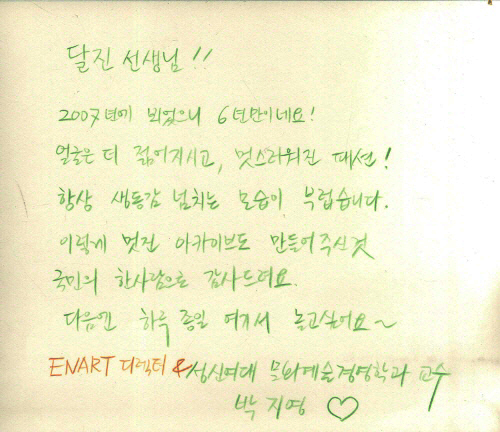 달진 선생님 !!
2007년에 뵈었으니 6년만이네요!
얼굴은 더 젊어지시고, 멋스러워진 패션!
항상 생동감 넘치는 모습이 부럽습니다.
이렇게 멋진 아카이브도 만들어주신것
국민의 한사람으로 감사드려요.
다음엔 하루 종일 여기서 놀고싶어요~
ENART 디렉터 & 성신여대 문화예술경영학과 교수
박지영 ♡